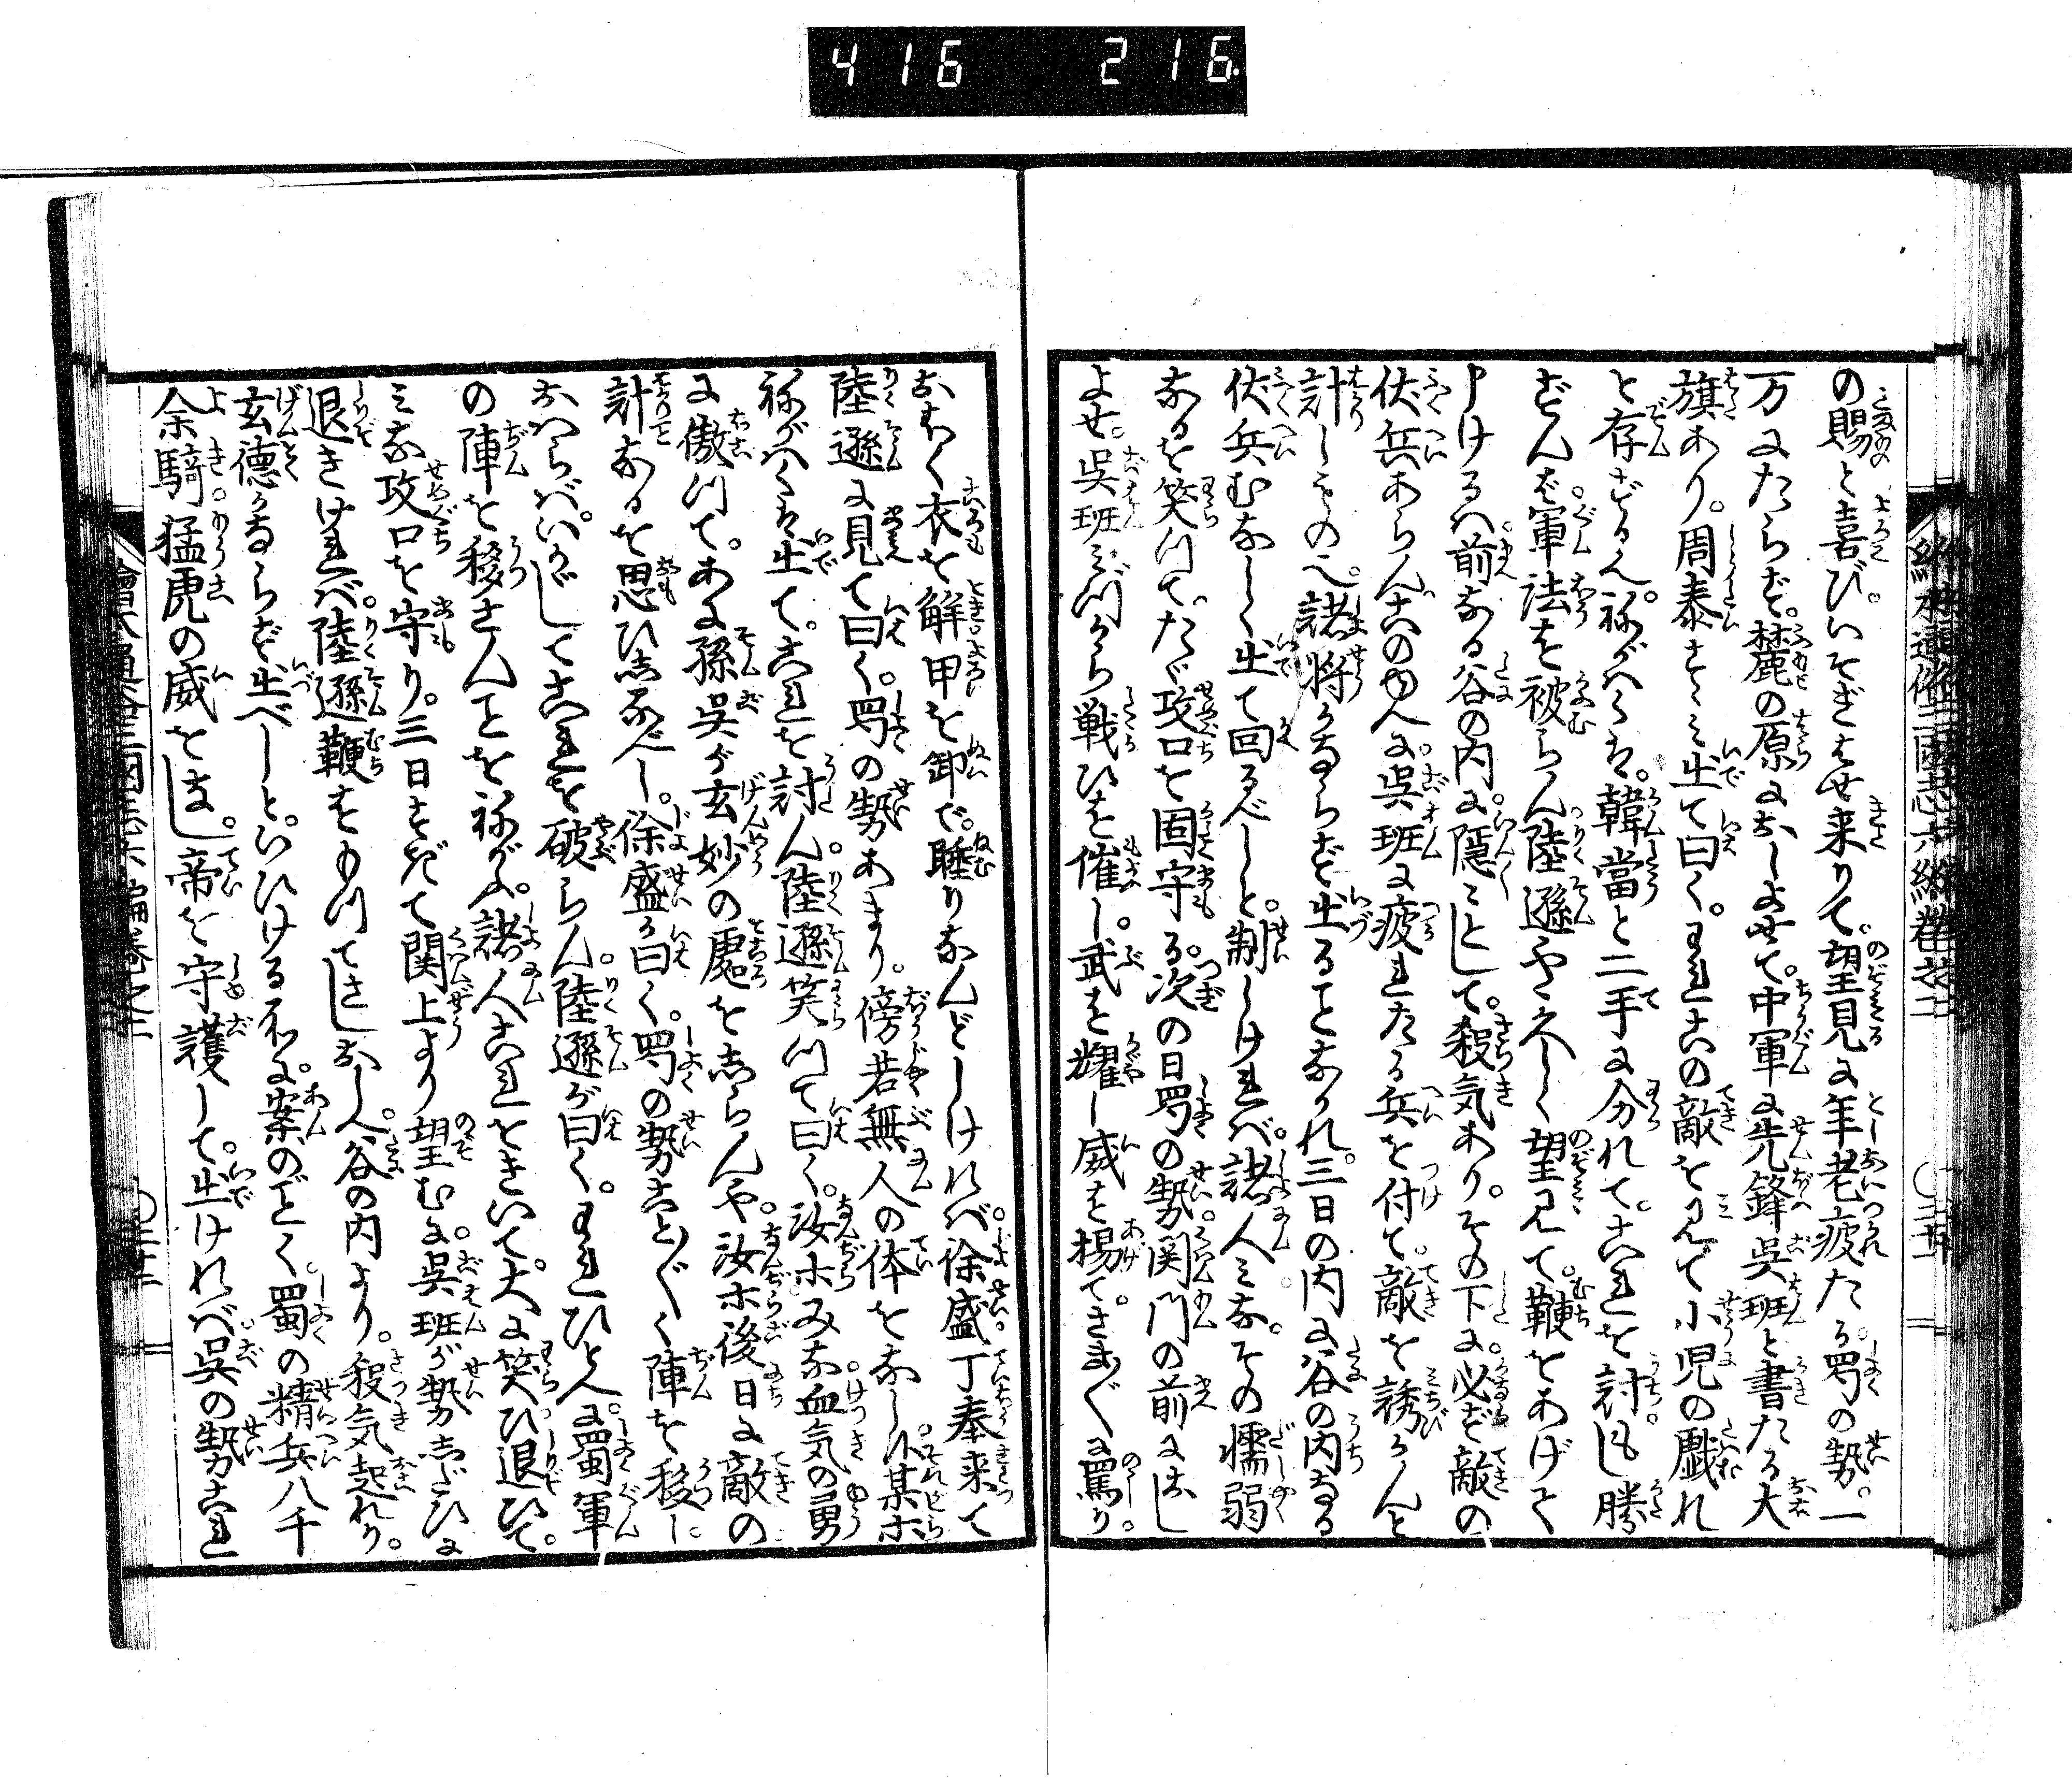 416 216.
の賜と喜び。いそぎはせ来りて。望見に年老疲たる蜀の勢。一
万にたらず。麓の原におしよせて。中軍に先鋒呉班と書たる大
旗あり。周泰すゝみ出て曰く。われこの敵を見て小児の戯れ
と存ざるゝ。ねがハくは。韓當と二手に分れて。これを討。もし勝
ずんば軍法を被らん陸遜やゝ久しく望見て。鞭をあげて
申けるハ前なる谷の内に。隠々として。殺気あり。その下に。必ず敵の
伏兵あらん。このゆへに。呉班に疲れたる兵を付て。敵を誘かんと
計しもの也。諸将かならず出ることなかれ。三日の内に谷の内なる
伏兵むなしく出て回るべしと。制しければ。諸人みな。その懦弱
なるを笑つて。たゞ攻口を固守る。次の日蜀の勢。関門の前におし
よせ。呉班みづから戦ひを催し。武を耀し威を揚て。さま〲に罵り。
おほく衣を解。甲を卸で。睡りなんどしければ。徐盛丁奉来て
陸遜に見て曰く。蜀の勢あまり。傍若無人の体をなし候。某ホ
ねがハくは出て。これを討ん。陸遜笑つて曰く。汝ホみな血気の勇
に傲つて。あに孫呉が玄妙の處をしらんや。汝ホ後日に敵の
計なるを思ひしるべし。徐盛が曰く。蜀の勢こと〲く陣を移し
おハらバ。いかゞしてこれを破らん。陸遜が曰く。われひとへに。蜀軍
の陣を移さんことを祢がふ。諸人これをきいて。大に笑ひ退ひて。
みな攻口を守り。三日すぎて関上より望むに。呉班が勢しだひに
退きければ。陸遜鞭をもつてさしおしへ。谷の内より。殺気起れり。
玄徳かならず出べしと。いひけるに。案のごとく。蜀の精兵八千
余騎。猛虎の威をまし。帝を守護して。出ければ。呉の勢これ